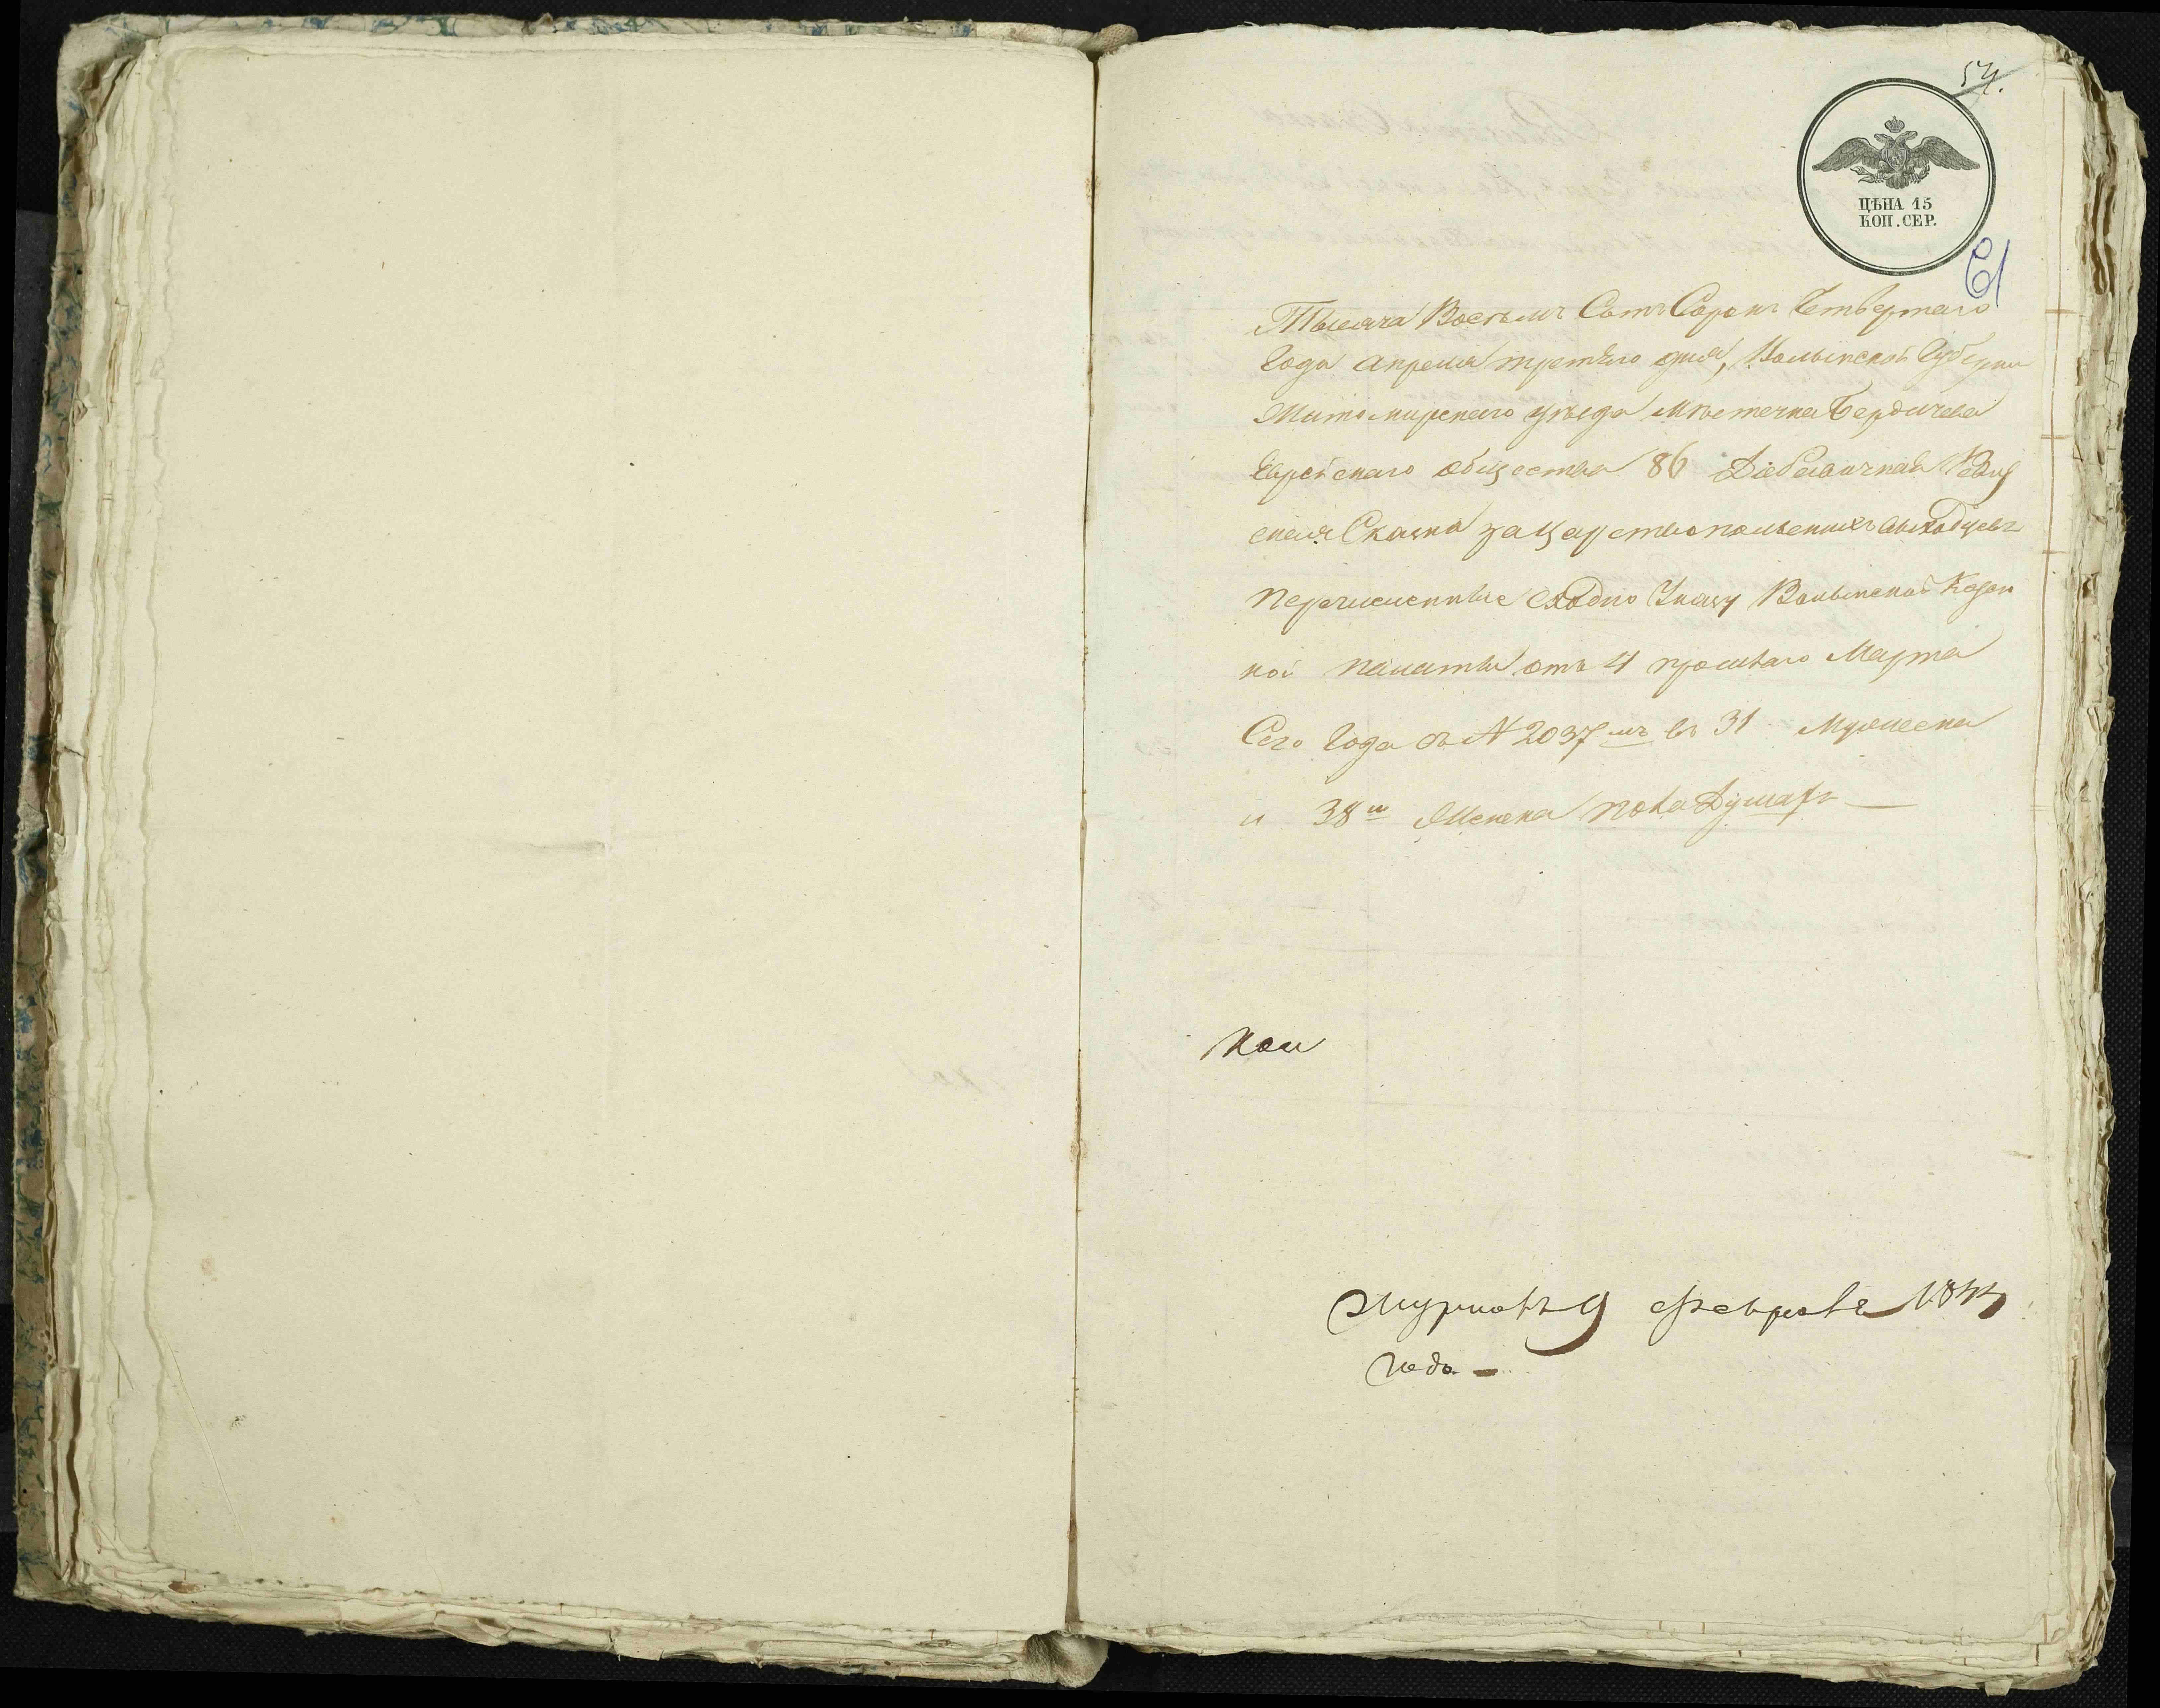 54.
ЦѢНА 15
КОП. СЕР.
61
Тысяча Восемь Сотъ Сорокъ Четвертаго
Года апреля третьго дня, Волынской Губерни
Житомирскаго уѣзда Местечка Бердичева
Еврейскаго общества 86 Добавочная Ревиз
ская Сказка за Царствопольскихъ выходцевъ
перечисленные сходно Указу Волынской Казен
ной палаты отъ 4 прошлаго Марта
Сего Года за N 2037 мъ въ 31 Мужеска
и 38 и Женска пола Душахъ
Кои
Журналъ 9 Февраля 1844
года